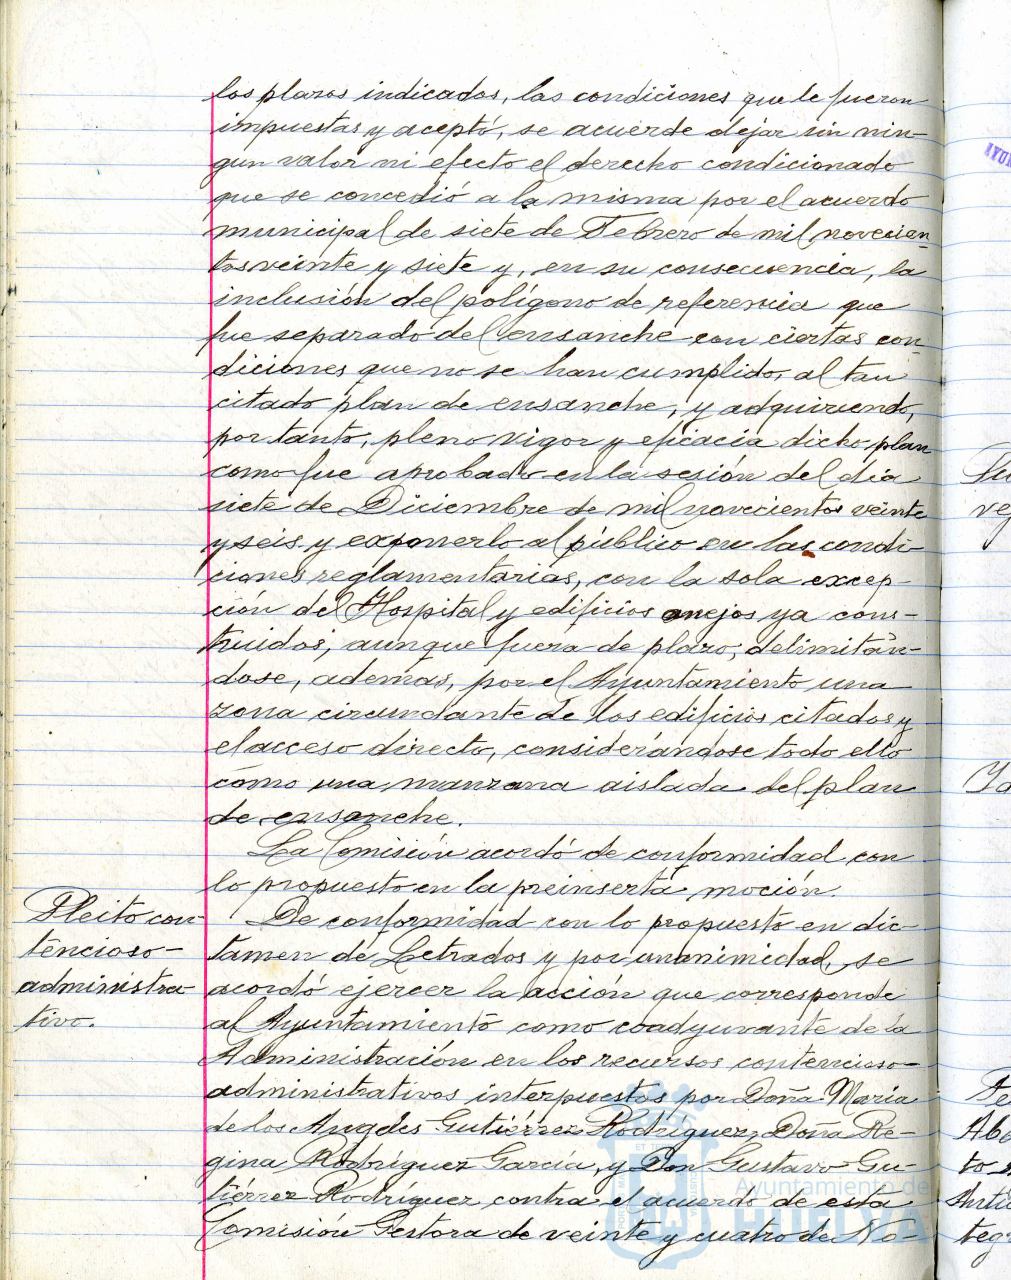 los plazos indicados, las condiciones que le fueron
impuestas y aceptó, se acuerde dejar sin nin-
gun valor ni efecto el derecho condicionado
que se concedió a la misma por el acuerdo
municipal de siete de Febrero de mil novecien-
tos veinte y siete y, en su consecuencia, la
inclusión del polígono de referencia que
fue separado del ensanche con ciertas con-
diciones que no se han cumplido, al tan
citado plan de ensanche, y adquiriendo,
por tanto, pleno vigor y eficacia dicho plan
como fue aprobado en la sesión del día
siete de Diciembre de mil novecientos veinte
y seis y exponerlo al público en las condi-
ciones reglamentarias, con la sola excep-
ción del Hospital y edificios anejos ya cons-
truidos, aunque fuera de plazo, delimitán-
dose, además, por el Ayuntamiento una
zona circundante de los edificios citados y
el acceso directo, considerándose todo ello
como una manzana aislada del plan
de ensanche.
La Comisión acordó de conformidad con
lo propuesto en la preinserta moción.
Pleito con-
tencioso-
administra-
tivo.
De conformidad con lo propuesto en dic-
tamen de Letrados y por unanimidad, se
acordó ejercer la acción que corresponde
al Ayuntamiento como coadyuvante de la
Administración en los recursos contencioso-
administrativos interpuestos por Doña María
de los Angeles Gutiérrez Rodríguez, Doña Re-
gina Rodríguez García, y Don Gustavo Gu-
tiérrez Rodríguez contra el acuerdo de esta
Comisión Gestora de veinte y cuatro de No-
Ayuntamiento de
HUELVA